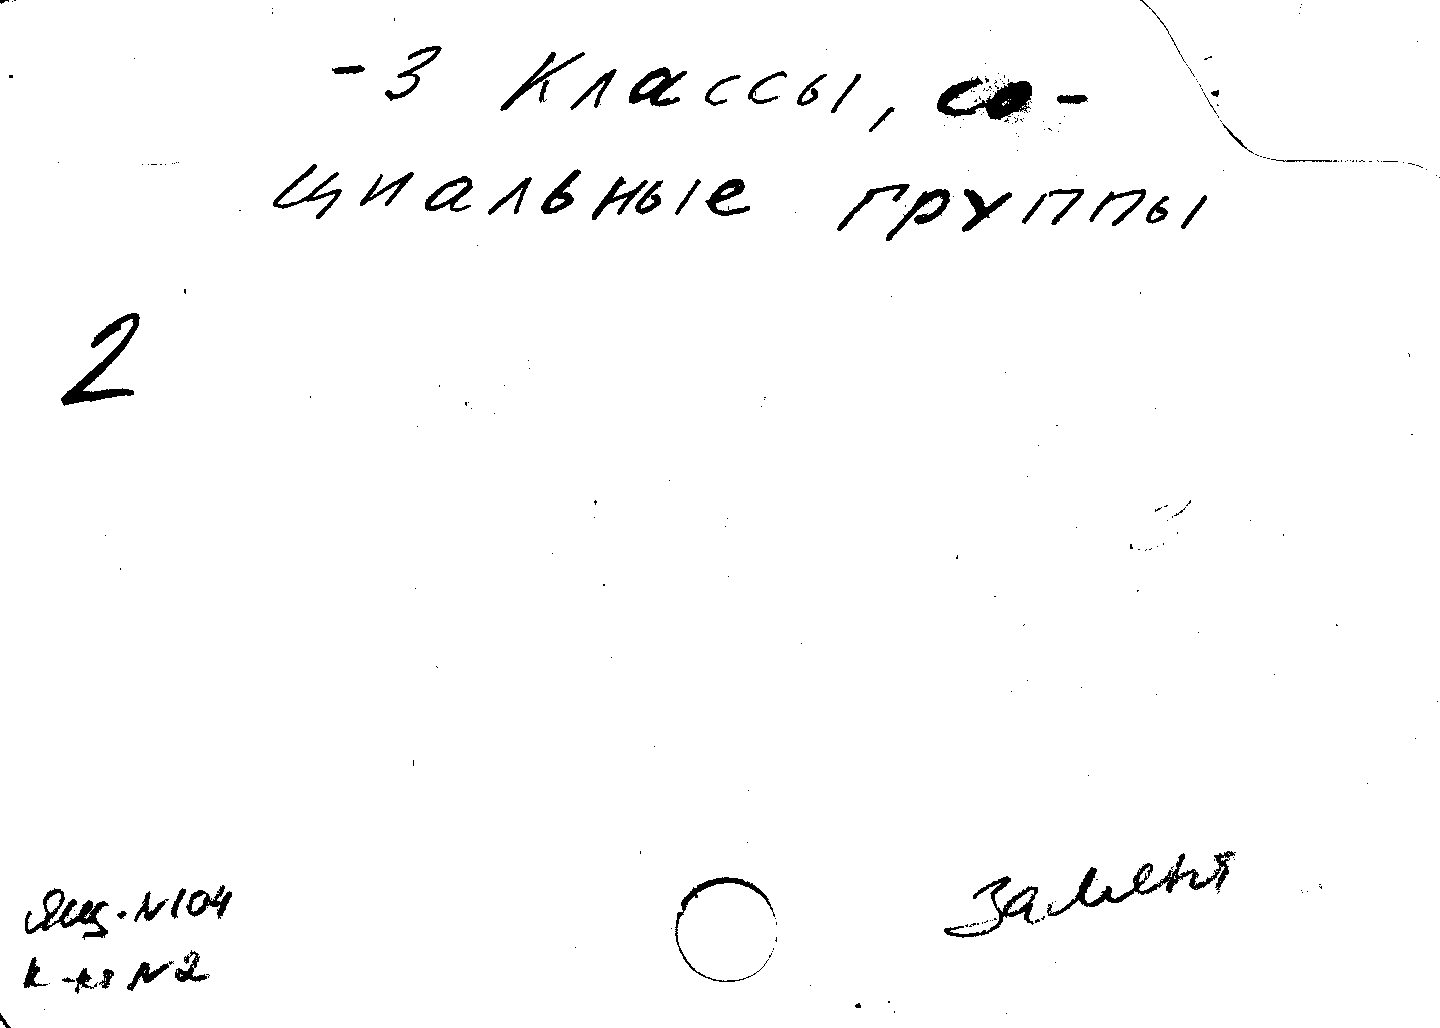 -3 Классы, со-
циальные группы
2
Ящ. N 104
к-ка N 2